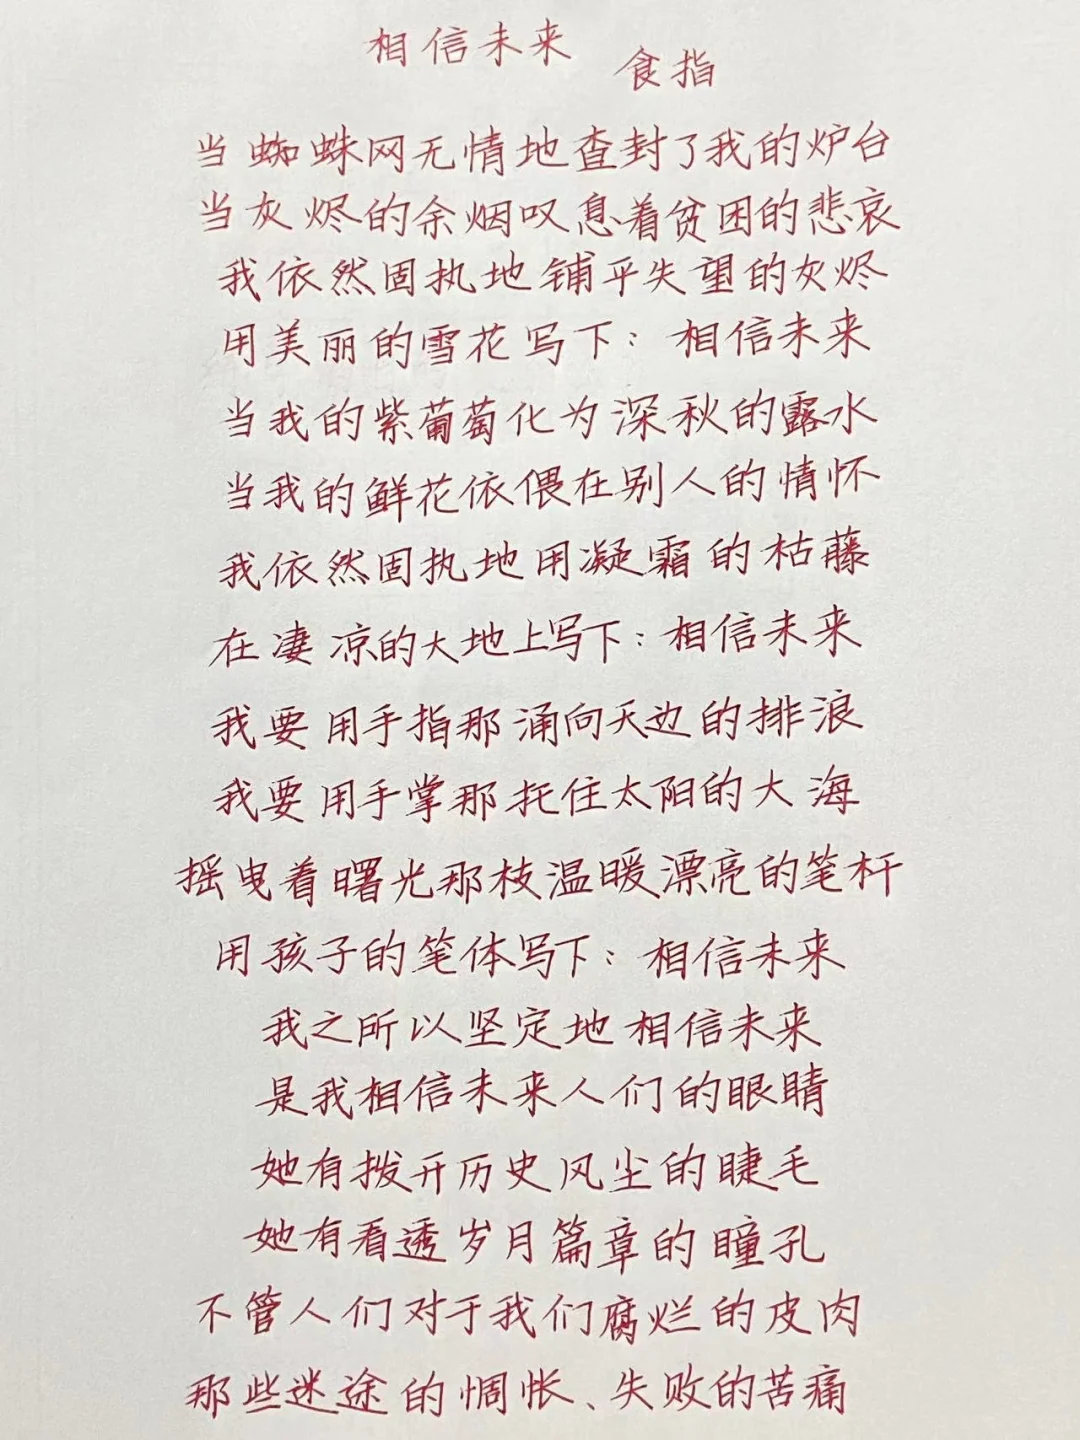 相信未来
食指
当蜘蛛网无情地查封了我的炉台
当灰烬的余烟叹息着贫困的悲哀
我依然固执地铺平失望的灰烬
用美丽的雪花写下：相信未来
当我的紫葡萄化为深秋的露水
当我的鲜花依偎在别人的情怀
我依然固执地用凝霜的枯藤
在凄凉的大地上写下：相信未来
我要用手指那涌向天边的排浪
我要用手掌那托住太阳的大海
摇曳着曙光那枝温暖漂亮的笔杆
用孩子的笔体写下：相信未来
我之所以坚定地相信未来
是我相信未来人们的眼睛
她有拨开历史风尘的睫毛
她有看透岁月篇章的瞳孔
不管人们对于我们腐烂的皮肉
那些迷途的惆怅、失败的苦痛